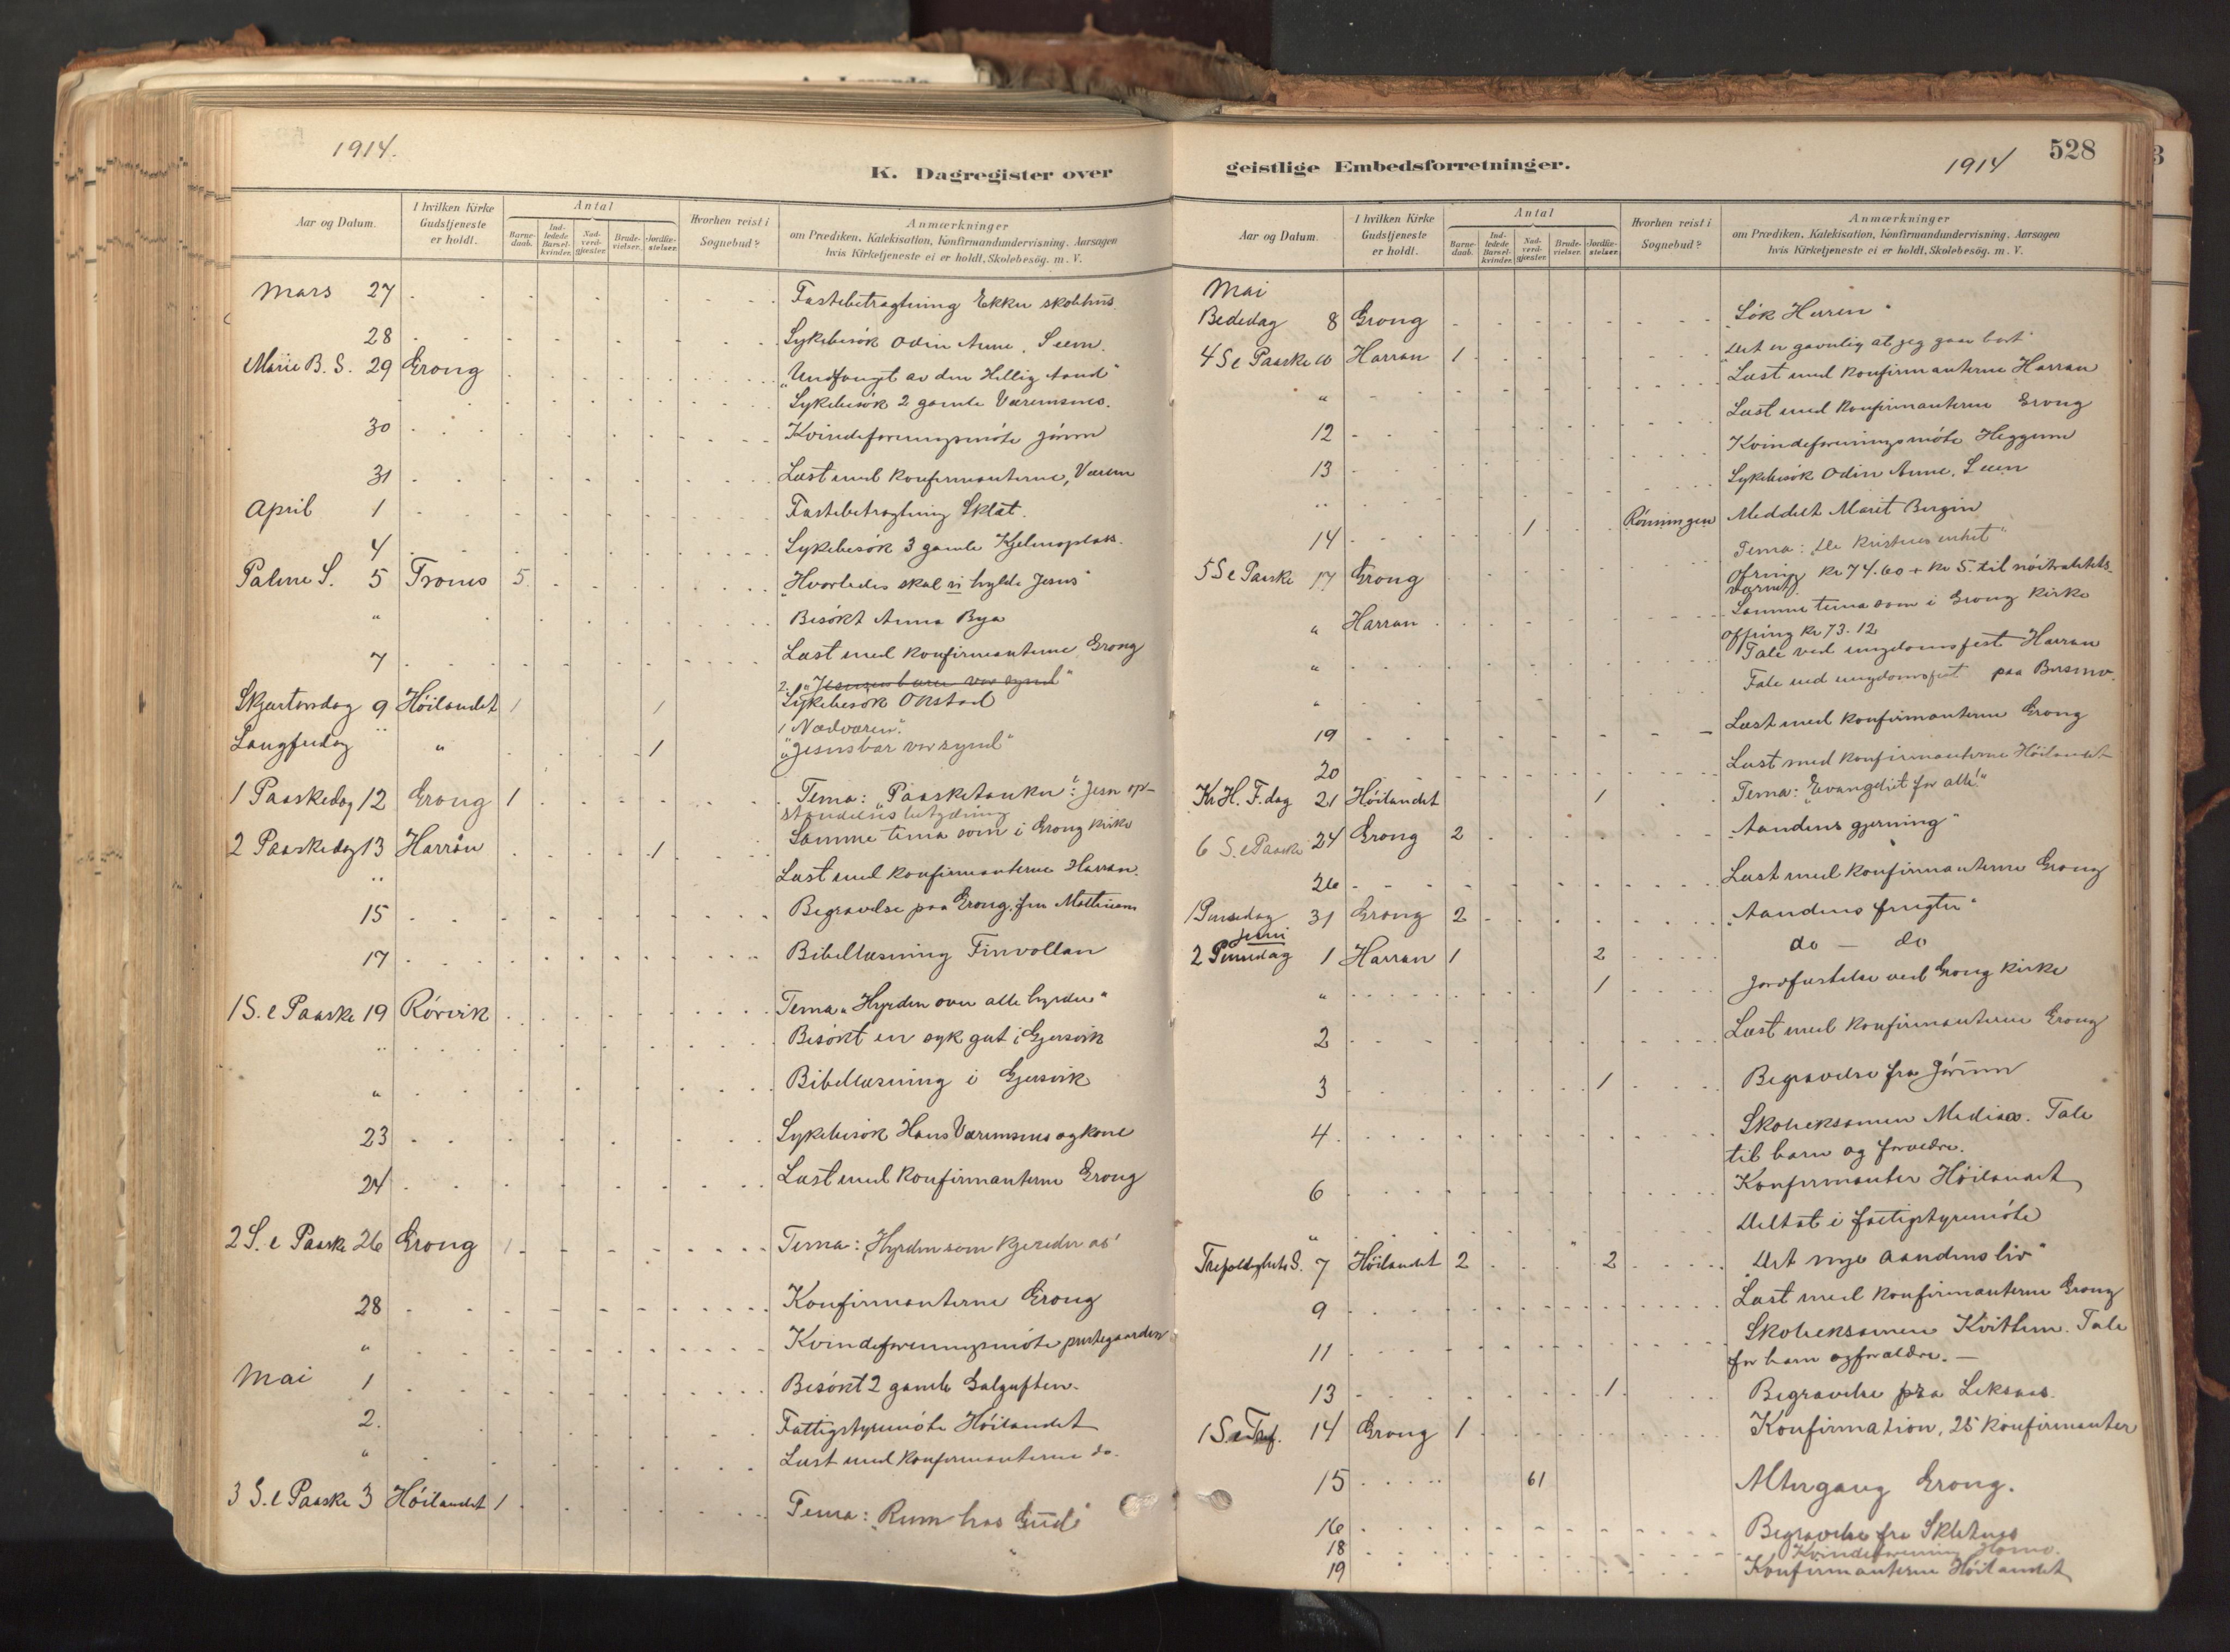 1914.
K. Dagregister over
Aar og Datum.
I hvilken Kirke Gudstjeneste er holdt.
Antal
Barne-daab.
Ind-ledede Barsel-kvinder.
Nad-verd-gjæster.
Brude-vielser.
Jordfæ-stelser.
Hvorhen reist i Sognebud?
Anmærkninger
om Prædiken, Katekisation, Konfirmandundervisning, Aarsagen
hvis Kirketjeneste ei er holdt, Skolebesög. m. V.
Mars 27 Fastebetragtning Ekker skolehus
28 Sykebesök Odin Anne, Seem.
Mariæ B. S. 29 Grong „Undfanget av den Hellig Aand"
Sykebesök 2 gamle Væremsnes.
30 Kvindeforeningsmöte Jörum
31 Læst med konfirmanterne, Værem
April 1 Fastebetragtning Sklæt.
4 Sykebesök 3 gamle
Palme S. 5 Trones 5 „Hvorledes skal vi hylde Jesus"
" Besökt Anna Bya
7 Læst med konfirmanterne Grong
Skjærtorsdag 9 Höilandet 1 1 Sykebesök Okstad
1 Nadværen.
Langfredag " 1 „Jesus bar vor synd"
1 Paaskedag 12 Grong 1 Tema: „Paasketanker": Jesu op-
standelses betydning
2 Paaskedag 13 Harran 1 Samme tema som i Grong kirke
" Læst med konfirmanterne Harran.
15 Begravelse paa Grong, fra
17 Bibellæsning Finvollan
1 S. e Paaske 19 Rörvik Tema „Hyrden over alle hyrder"
" Besökt en syk gut i Gjersvik
" Bibellæsning i Gjersvik
23 Sykebesök Hans Væremsnes og kone
24 Læst med konfirmanterne Grong
2 S. e Paaske 26 Grong 1 Tema: „Hyrden som kjender os"
28 Konfirmanterne Grong
" Kvindeforeningsmöte prestegaarden
Mai 1 Besökt 2 gamle Galguften.
2. Fattigstyremöte Höilandet
" Læst med konfirmanterne do.
3 S. e Paaske 3 Höilandet 1 Tema: „Rum hos Gud"
geistlige Embedsforretninger.
1914
528
Aar og Datum.
I hvilken Kirke Gudstjeneste er holdt.
Antal
Barne-daab.
Ind-ledede Barsel-kvinder.
Nad-verd-gjæster.
Brude-vielser.
Jordfæ-stelser.
Hvorhen reist i Sognebud?
Anmærkninger
om Prædiken, Katekisation, Konfirmandundervisning, Aarsagen
hvis Kirketjeneste ei er holdt, Skolebesög. m. V.
Mai
Bededag 8 Grong „Søk Herren"
4 S e Paaske 10 Harran 1 „Det er gavnlig at jeg gaar bort"
" Læst med konfirmanterne Harran
12 Læst med konfirmanterne Grong
13 Kvindeforeningsmöte Heggum
" Sykebesök Odin Anne, Seem
14 1 Rönningen Meddelt Marit Bergin
5 S e Paaske 17 Grong Tema: „De kristnes enhet"
Ofring kr 74.60 + kr 5. til nöitralitets-
værnet
" Harran Samme tema som i Grong kirke
Offring kr 73.12
" Tale ved ungdomsfest Harran
" Tale ved ungdomsfest paa Bersmo.
19 Læst med konfirmanterne Grong
20 Læst med konfirmanterne Höilandet
Kr H. F. dag 21 Höilandet 1 Tema: „Evangeliet for alle!"
6 S. e Paaske 24 Grong 2 „Aandens gjerning"
26 Læst med konfirmanterne Grong
1 Pinsedag 31 Grong 2 „Aandens frugter"
Juni
2 Pinsedag 1 Harran 1 2 do — do
" 1 Jordfæstelse ved Grong kirke
2 Læst med konfirmanterne Grong
3 1 Begravelse fra Jörum
4 Skoleeksamen Mediaa. Tale
til barn og forældre.
6 Konfirmanter Höilandet
" Deltat i fattigstyremöte
Trefoldighets S. 7 Höilandet 2 2 „Det nye aandens liv"
9 Læst med konfirmanterne Grong
11 Skoleeksamen Kvittem. Tale
for barn og forældre. —
13 1 Begravelse fra Leksaas
1 S e Tref. 14 Grong 1 Konfirmation, 25 konfirmanter
15 61 Altergang Grong.
16 Begravelse fra Skletnes
18 Kvindeforening
19 Konfirmanterne Höilandet